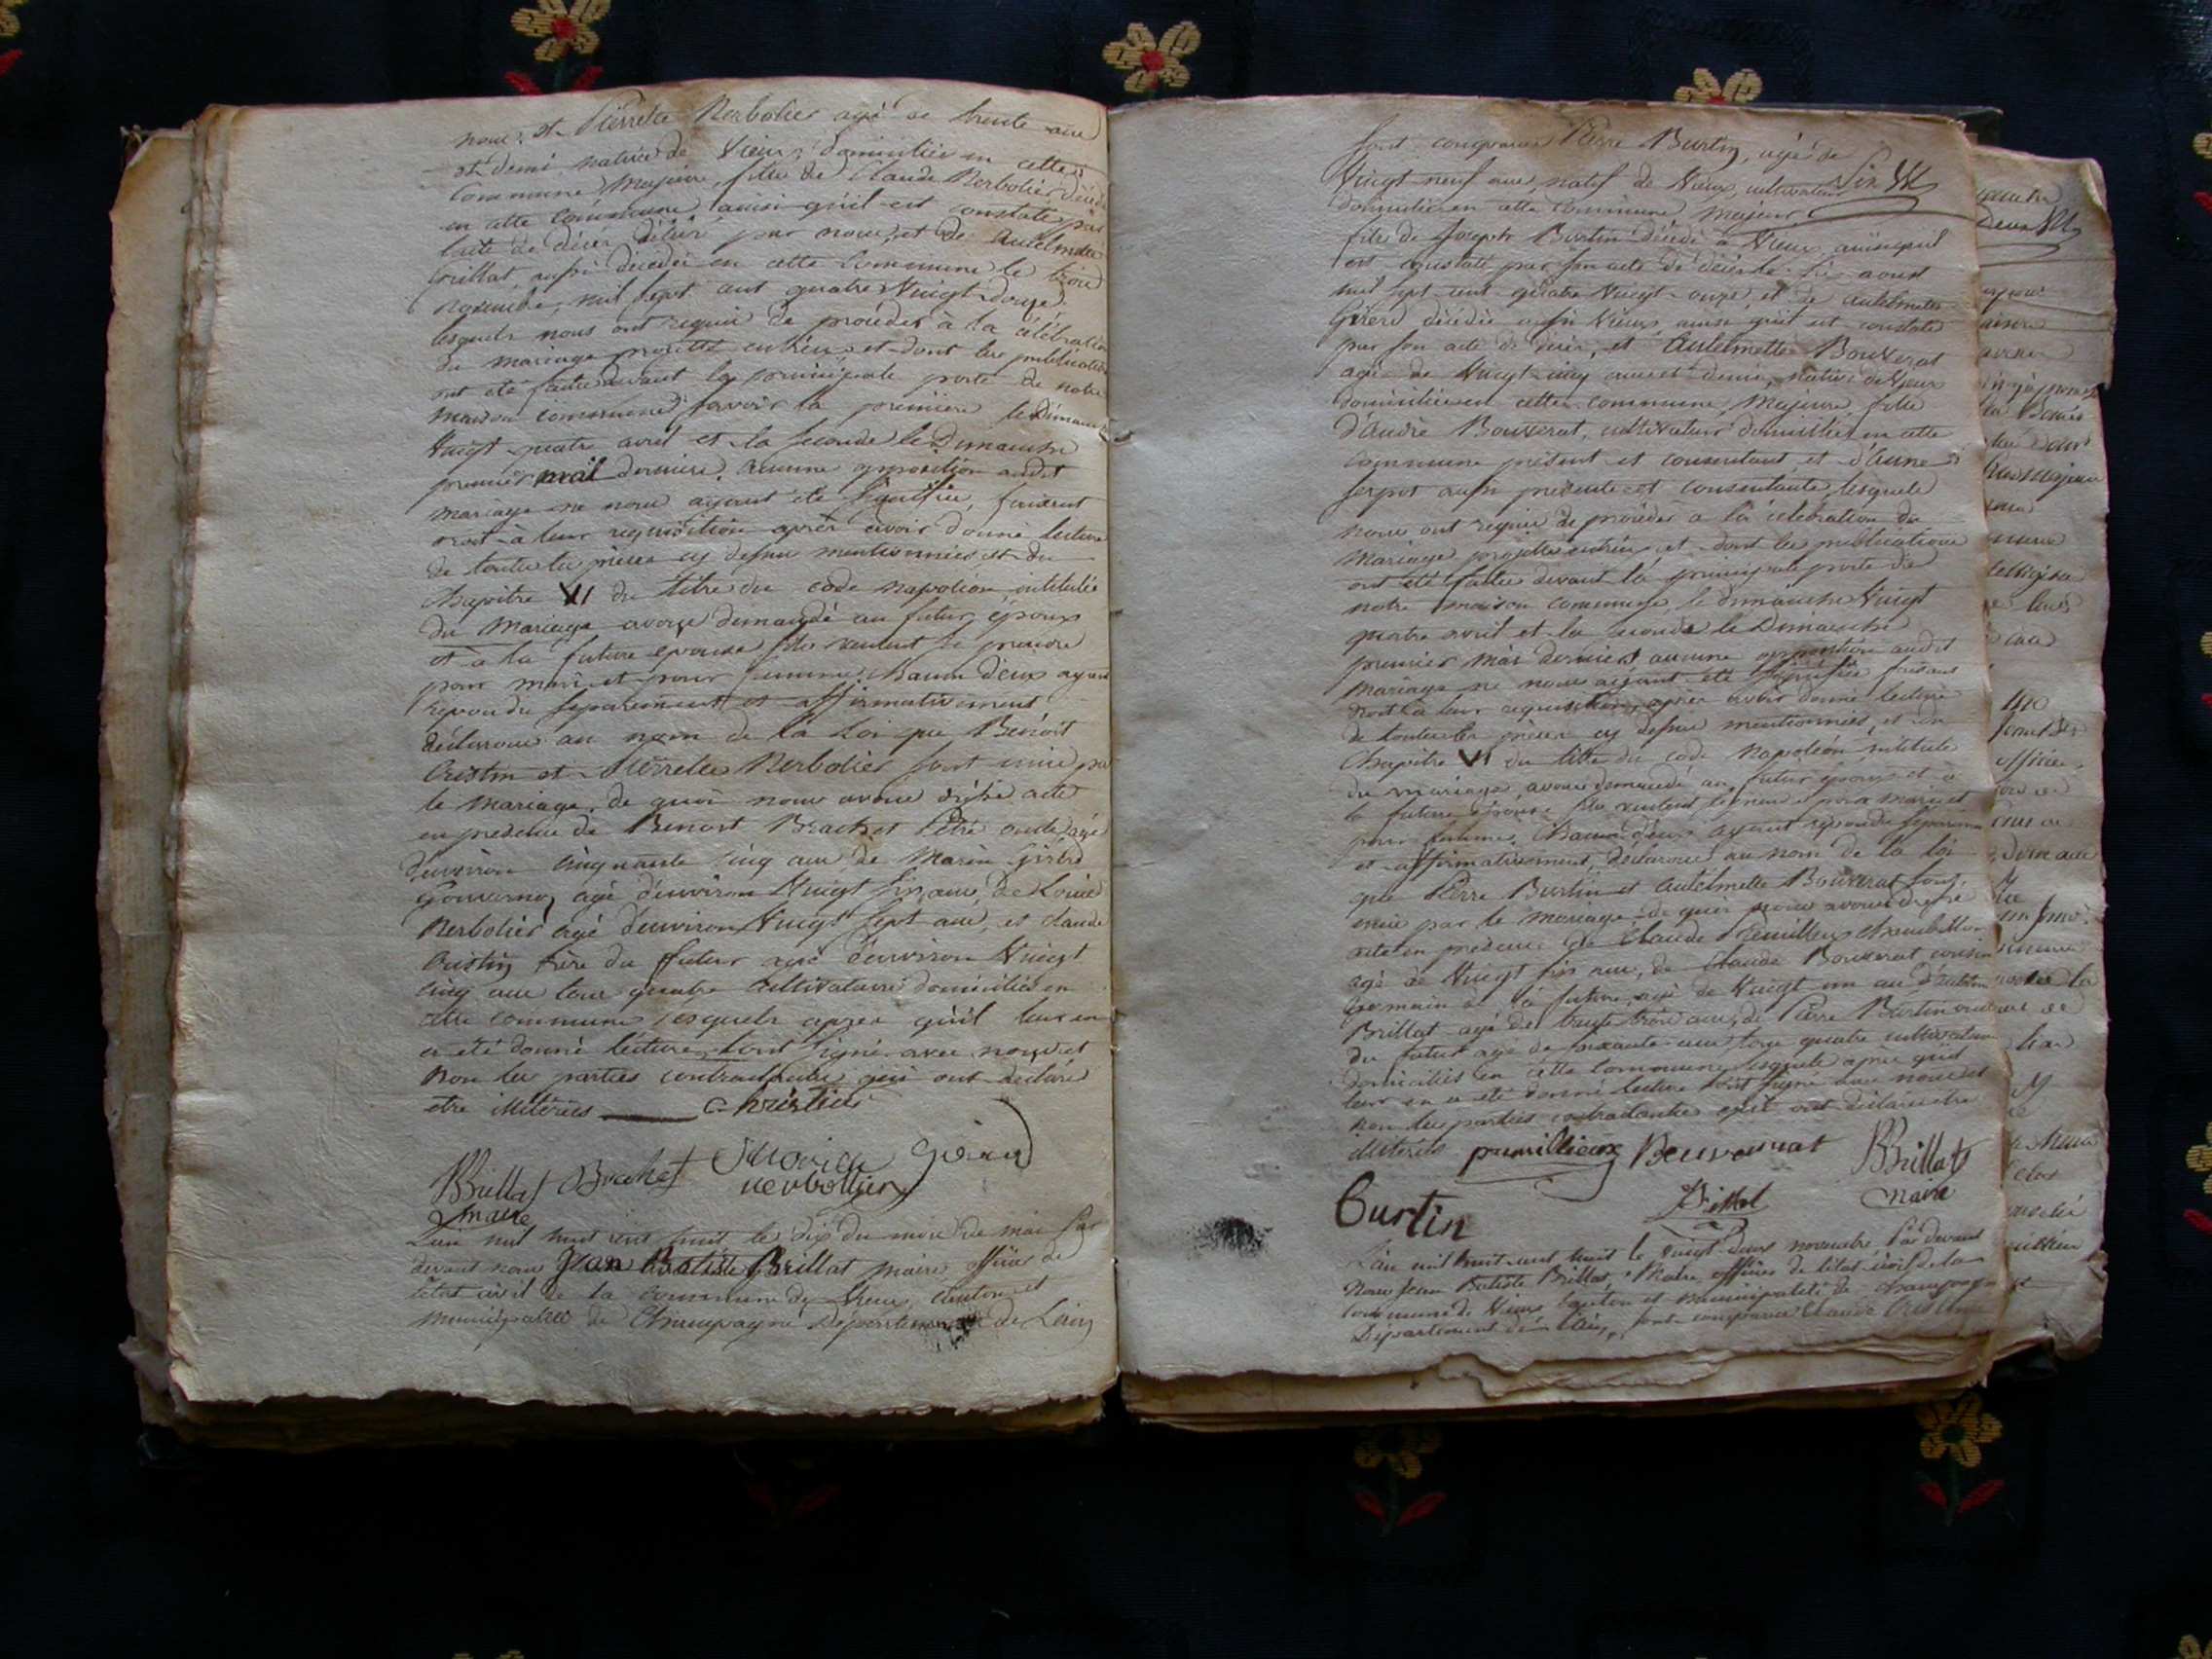 nous, et Pierrette Nerbolier agé de trente ans
et demi, native de Vieux, domiciliée en cette
Commune Majeure, fille de Claude Nerbolier décédé
en cette commune ainsi qu'il est constaté par
l'acte de décés délivré par nous, et de Antelmette
Brillat, aussi décédée en cette commune le trois
novembre, mil sept cent quatre Vingt douze.
lesquels nous ont requis de procéder à la célébration
du mariage projetté entr'eux et dont les publications
ont été faites devant la principale porte de notre
maison commune, savoir la premiere le Dimanche
Vingt quatre avril et la seconde le Dimanche
premier mai derniers. aucune opposition audit
mariage ne nous ayant été signifiée, faisant
droit à leur requisition après avoir donné lecture
de toutes les pièces cy dessus mentionnées et du
chapitre VI du titre du code napoléon, intitulée
du Mariage avons demandé au futur époux
et à la future epouse s'ils veulent se prendre
pour mari et pour femme. Chacun d'eux ayant
repondu séparément et affirmativement
déclarons au nom de la Loi que Benoit
Cristin et Pierrette Nerbolier sont unis par
le mariage. de quoi nous avons dréssé acte
en présence de Benoit Brachet oncle agé
d'environ cinquante cinq ans de Marin Girérd
agé d'environ Vingt six ans, de Louis
Nerbolier agé d'environ Vingt sept ans, et Claude
Cristin frère du futur agé d'environ Vingt
cinq ans tous quatre Cultivateurs domiciliés en
cette commune lesquels après qu'il leur en
a été donné lecture, sont signé avec nous, et
non les parties contractantes qui ont declaré
etre illitérées christin
Brillat Brachet Marin Girerd
maire nerbollier
L'an mil huit cent huit le dix du mois de mai par
devant nous Jean Batiste Brillat maire officier de
l'état civil de la commune de Vieux, canton et
municipalité de Champagne Département de Lain
sont comparus Pierre Burtin, agé de
Vingt neuf ans, natif de Vieux, cultivateur
domicilié en cette commune, majeur,
fils de Joseph Burtin décédé à Vieux ainsi qu'il
est constaté par son acte de décés le six aoust
mil sept cent quatre Vingt onze, et de antelmette
Girerd décédée aussi à Vieux ainsi qu'il est constaté
par son acte de décés, et Antelmette Bouverat
agée de Vingt cinq ans et demie, native de Vieux
domiciliée en cette commune, Majeure, fille
d'André Bouverat, cultivateur domicilié en cette
commune présent et consentant, et d'Anne
aussi présente et consentante, lesquels
nous ont requis de procéder à la célébration du
Mariage projetté entr'eux et dont les publications
ont été faites devant la principale porte de
notre maison commune, le dimanche Vingt
quatre avril et la seconde le Dimanche
premier mai derniers aucune opposition audit
Mariage ne nous aiyant été signifiée faisant
droit à leur requisition, après avoir donné lecture
de toutes les pièces cy dessus mentionnées, et du
Chapitre VI du titre du code Napoléon, intitulé
du mariage, avons demandé au futur époux et à
la future épouse s'ils veulent se prendre pour mari et
pour femme, Chacun d'eux ayant répondu séparement
et affirmativement, déclarons au nom de la loi
que Pierre Burtin et Antelmette Bouverat sont
unis par le mariage. de quoi nous avons dressé
acte en présence de Claude
agé de Vingt six ans, de Claude Bouverat cousin
Germain de la future, agé de Vingt un an d'Antelme
Brillat agé de trente trois ans, de Pierre Burtin oncle
du futur agé de soixante ans tous quatre cultivateurs
domiciliés en cette Commune, lesquels après qu'il
leur en a été donné lecture sont signé avec nous et
non les parties contractantes qui ont déclaré etre
illitérées Beuverat BBrillat
Burtin Brillat maire
L'an mil huit cent huit le vingt deux novembre. Par devant
Nous Jean Batiste Brillat, Maire, officier de l'état civil de la
Commune de Vieux, canton et municipalité de champagne
Département de l'ain, sont comparus Claude Cristin